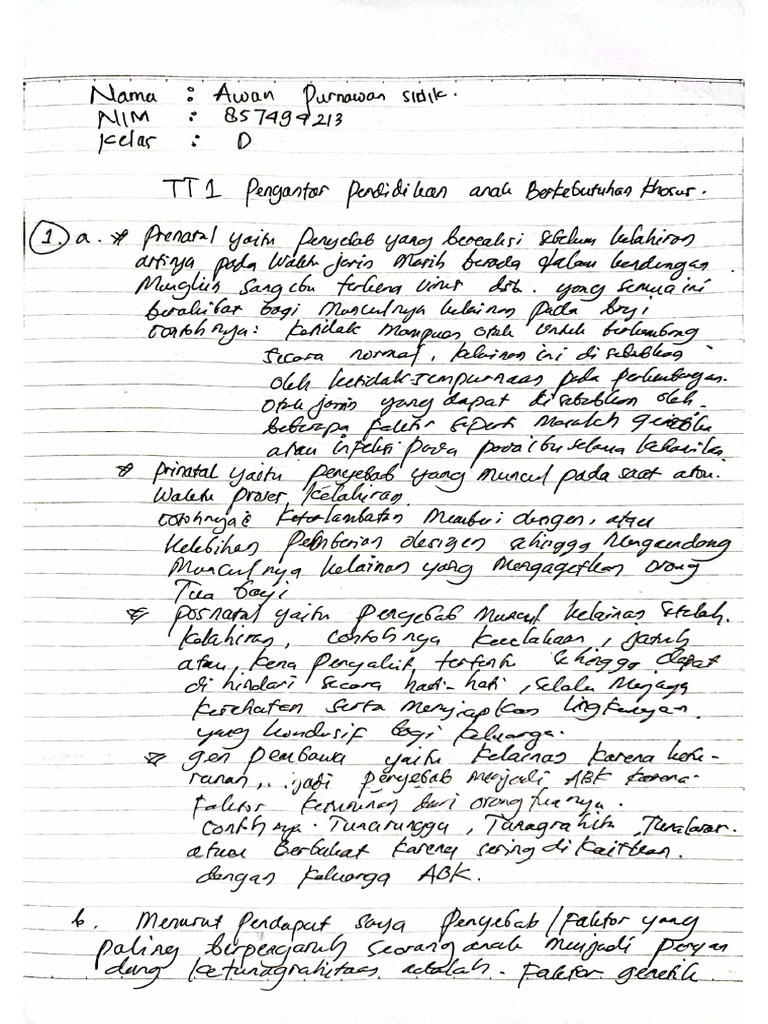 Nama : Awan Purnawan Sidik.
NIM : 857494213
Kelas : D
TT 1 Pengantar Pendidikan anak Berkebutuhan khusus.
1. a. * Prenatal yaitu Penyebab yang bereaksi sebelum kelahiran
artinya pada waktu janin masih berada dalam kandungan.
Mungkin sang ibu terkena virus dsb. yang semua ini
berakibat bagi munculnya kelainan pada bayi
contohnya: ketidak mampuan otak untuk berkembang
secara normal, kelainan ini di sebabkan
oleh ketidak-sempurnaan pada perkembangan.
otak janin yang dapat di sebabkan oleh.
beberapa faktor seperti masalah genetika
atau infeksi pada ibu selama kehamilan.
* prinatal yaitu penyebab yang muncul pada saat atau.
waktu proses kelahiran.
contohnya: keterlambatan memberi oksigen, atau
kelebihan pemberian oksigen sehingga mengandung
munculnya kelainan yang mengagetkan orang
Tua bayi
* posnatal yaitu penyebab muncul kelainan setelah.
kelahiran, contohnya kecelakaan, jatuh
atau, kena penyakit tertentu sehingga dapat
di hindari secara hati-hati, selalu menjaga
kesehatan serta menyiapkan lingkungan.
yang kondusif bagi keluarga.
* gen pembawa yaitu kelainan karena ketu-
runan, .. jadi penyebab menjadi ABK karena
faktor keturunan dari orang tuanya.
contohnya. Tunarungu, Tunagrahita, Tunalaras.
atau Berbakat karena sering di kaitkan.
dengan keluarga ABK.
b. Menurut Pendapat saya Penyebab/Faktor yang
paling berpengaruh seorang anak menjadi penyan
dang ketunagrahitaan adalah. Faktor genetik